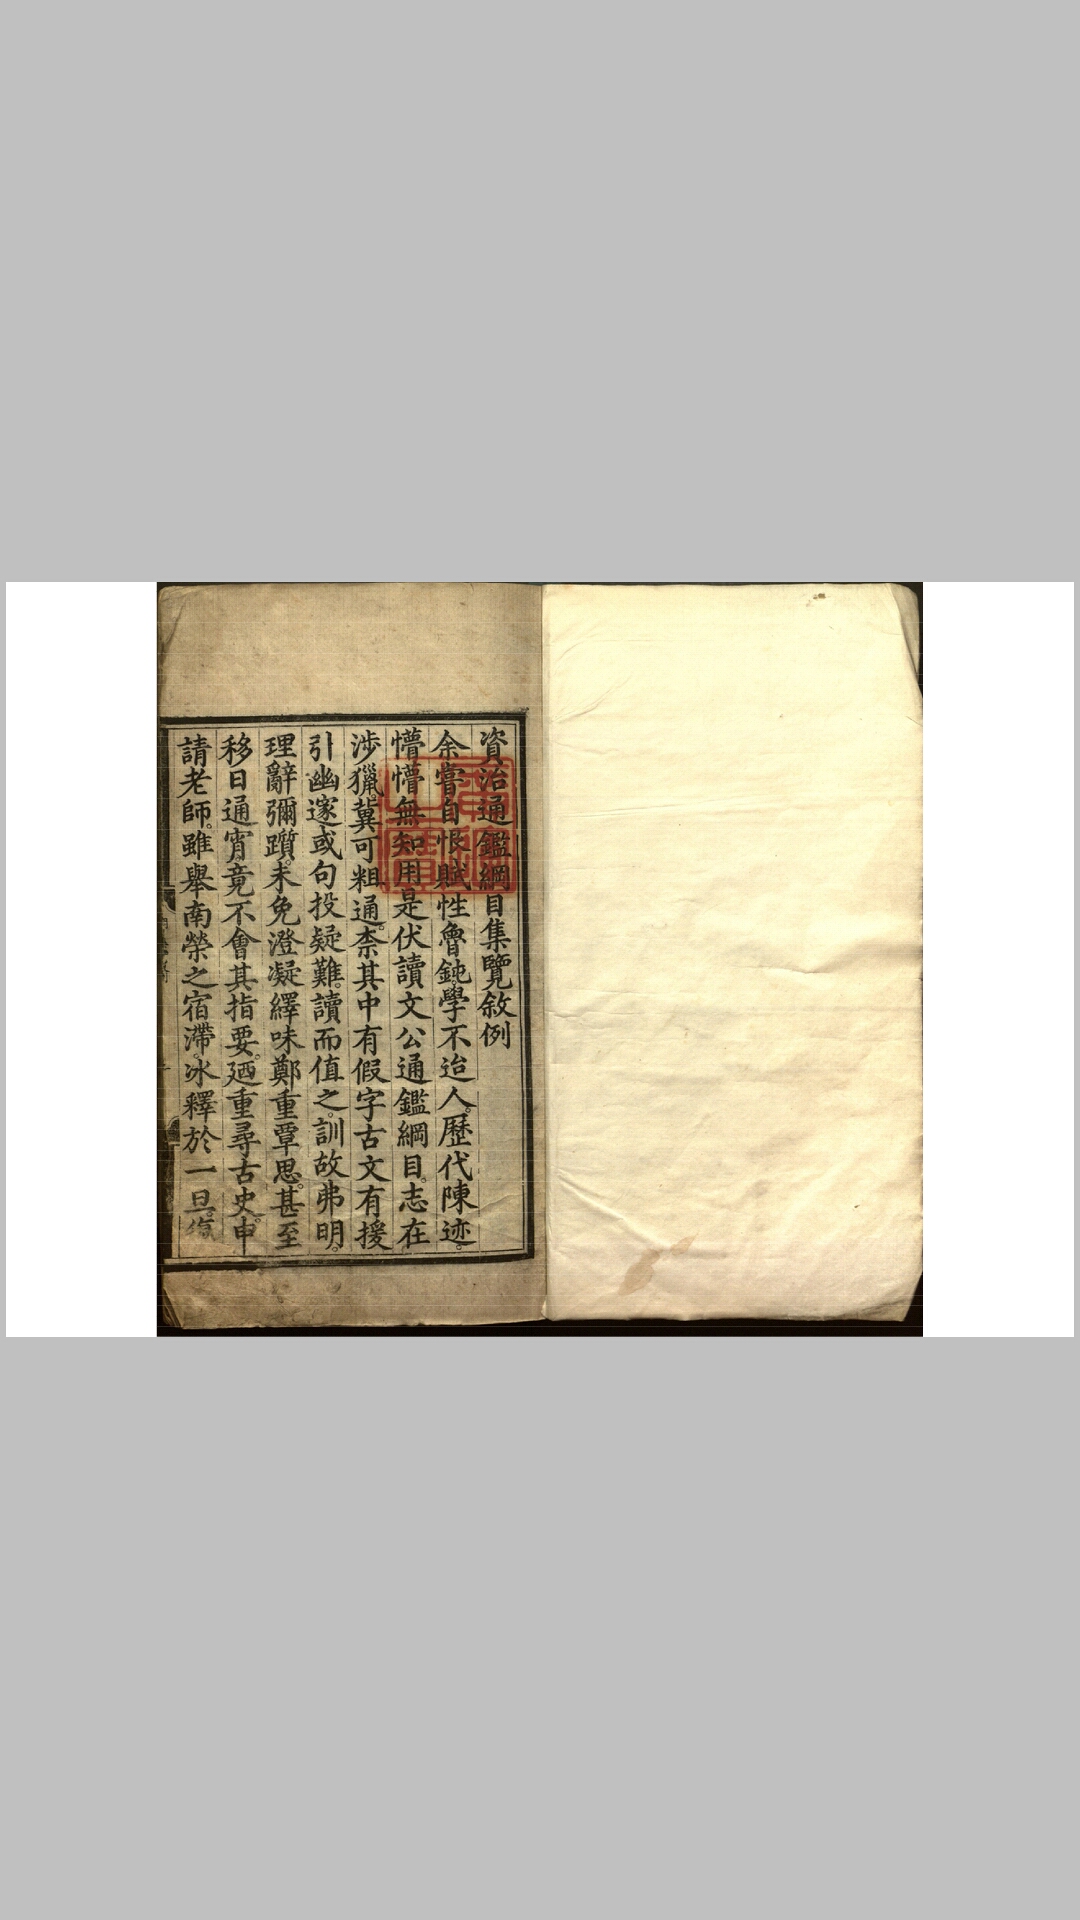 資治通鑑綱目集覽敘例
余嘗自恨賦性魯鈍。學不迨人。歷代陳迹。
懵懵無知。用是伏讀文公通鑑綱目。志在
涉獵。冀可粗通。柰其中有假字古文有援
引幽邃或句投疑難。讀而值之。訓故弗明。
理辭彌躓。未免澄凝繹味鄭重覃思。甚至
移日通宵。竟不會其指要。廼重尋古史。申
請老師。雖舉南榮之宿滯。冰釋於一旦。